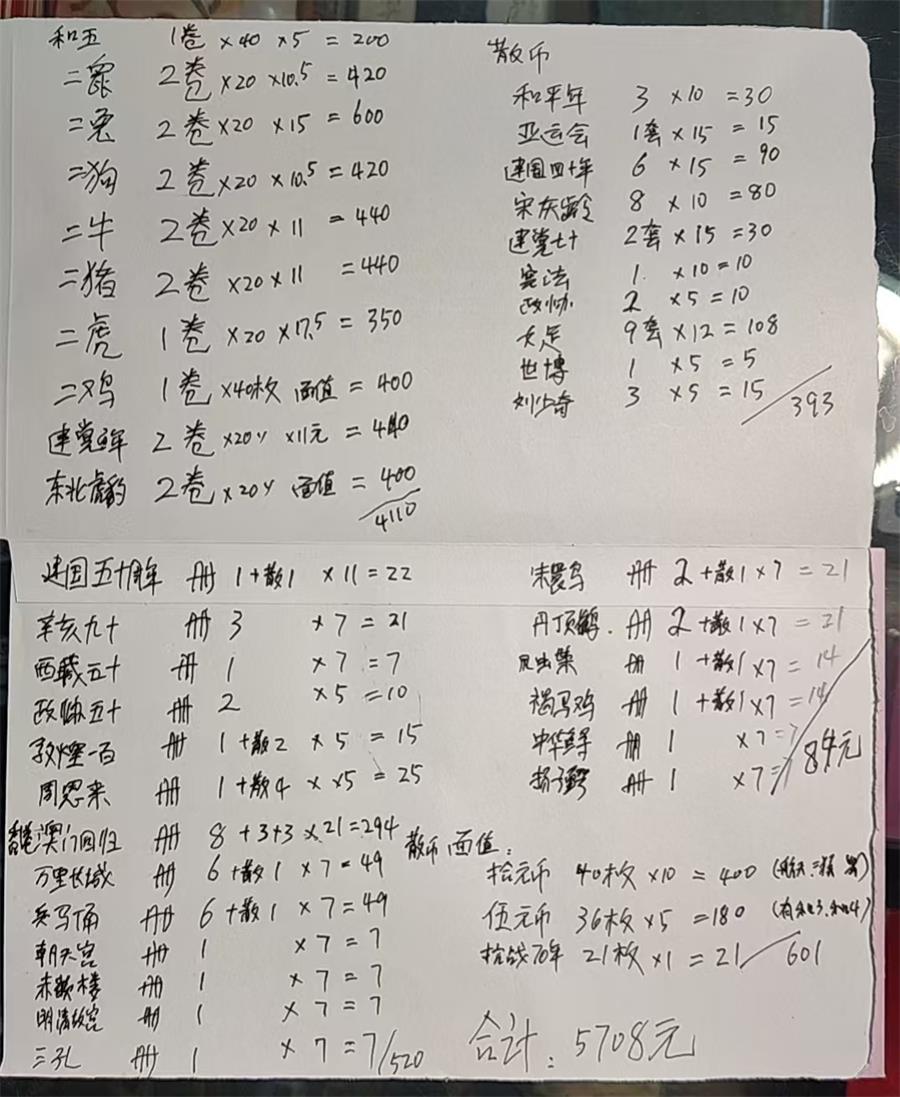 和五 1卷 ×40 ×5 = 200
二鼠 2卷 ×20 ×10.5 = 420
二兔 2卷 ×20 ×15 = 600
二狗 2卷 ×20 ×10.5 = 420
二牛 2卷 ×20 × 11 = 440
二猪 2卷 ×20 × 11 = 440
二虎 1卷 ×20 ×17.5 = 350
二鸡 1卷 ×40枚 面值 = 400
建党百年 2卷 ×20〃 ×11元 = 440
东北虎豹 2卷 ×20〃 面值 = 400
4110
散币
和平年 3 ×10 =30
亚运会 1套 ×15 = 15
建国四十年 6 ×15 = 90
宋庆龄 8 ×10 =80
建党七十 2套 ×15 =30
宪法 1. ×10=10
政协 2 ×5=10
大足 9套×12=108
世博 1 ×5=5
刘少奇 3 ×5=15
393
建国五十周年 册 1+散1 ×11=22
辛亥九十 册 3 ×7=21
西藏五十 册 1 ×7=7
政协五十 册 2 ×5=10
敦煌一百 册 1+散2 ×5=15
周恩来 册 1+散4 × ×5=25
澳门回归 册 8+3+3×21=294
万里长城 册 6+散1 ×7=49
兵马俑 册 6+散1 ×7=49
朝天宫 册 1 ×7=7
赤嵌楼 册 1 ×7=7
明清故宫 册 1 ×7=7
三孔 册 1 ×7=7/520
朱鹮鸟 册 2+散1×7=21
丹顶鹤. 册 2+散1×7=21
册 1+散1×7=14
褐马鸡 册 1+散1×7=14
中华鲟 册 1 ×7=7
扬子鳄 册 1 ×7=
84元
散币面值:
拾元币 40枚×10=400
伍元币 36枚×5=180
抗战70年 21枚×1=21/601
合计: 5708元